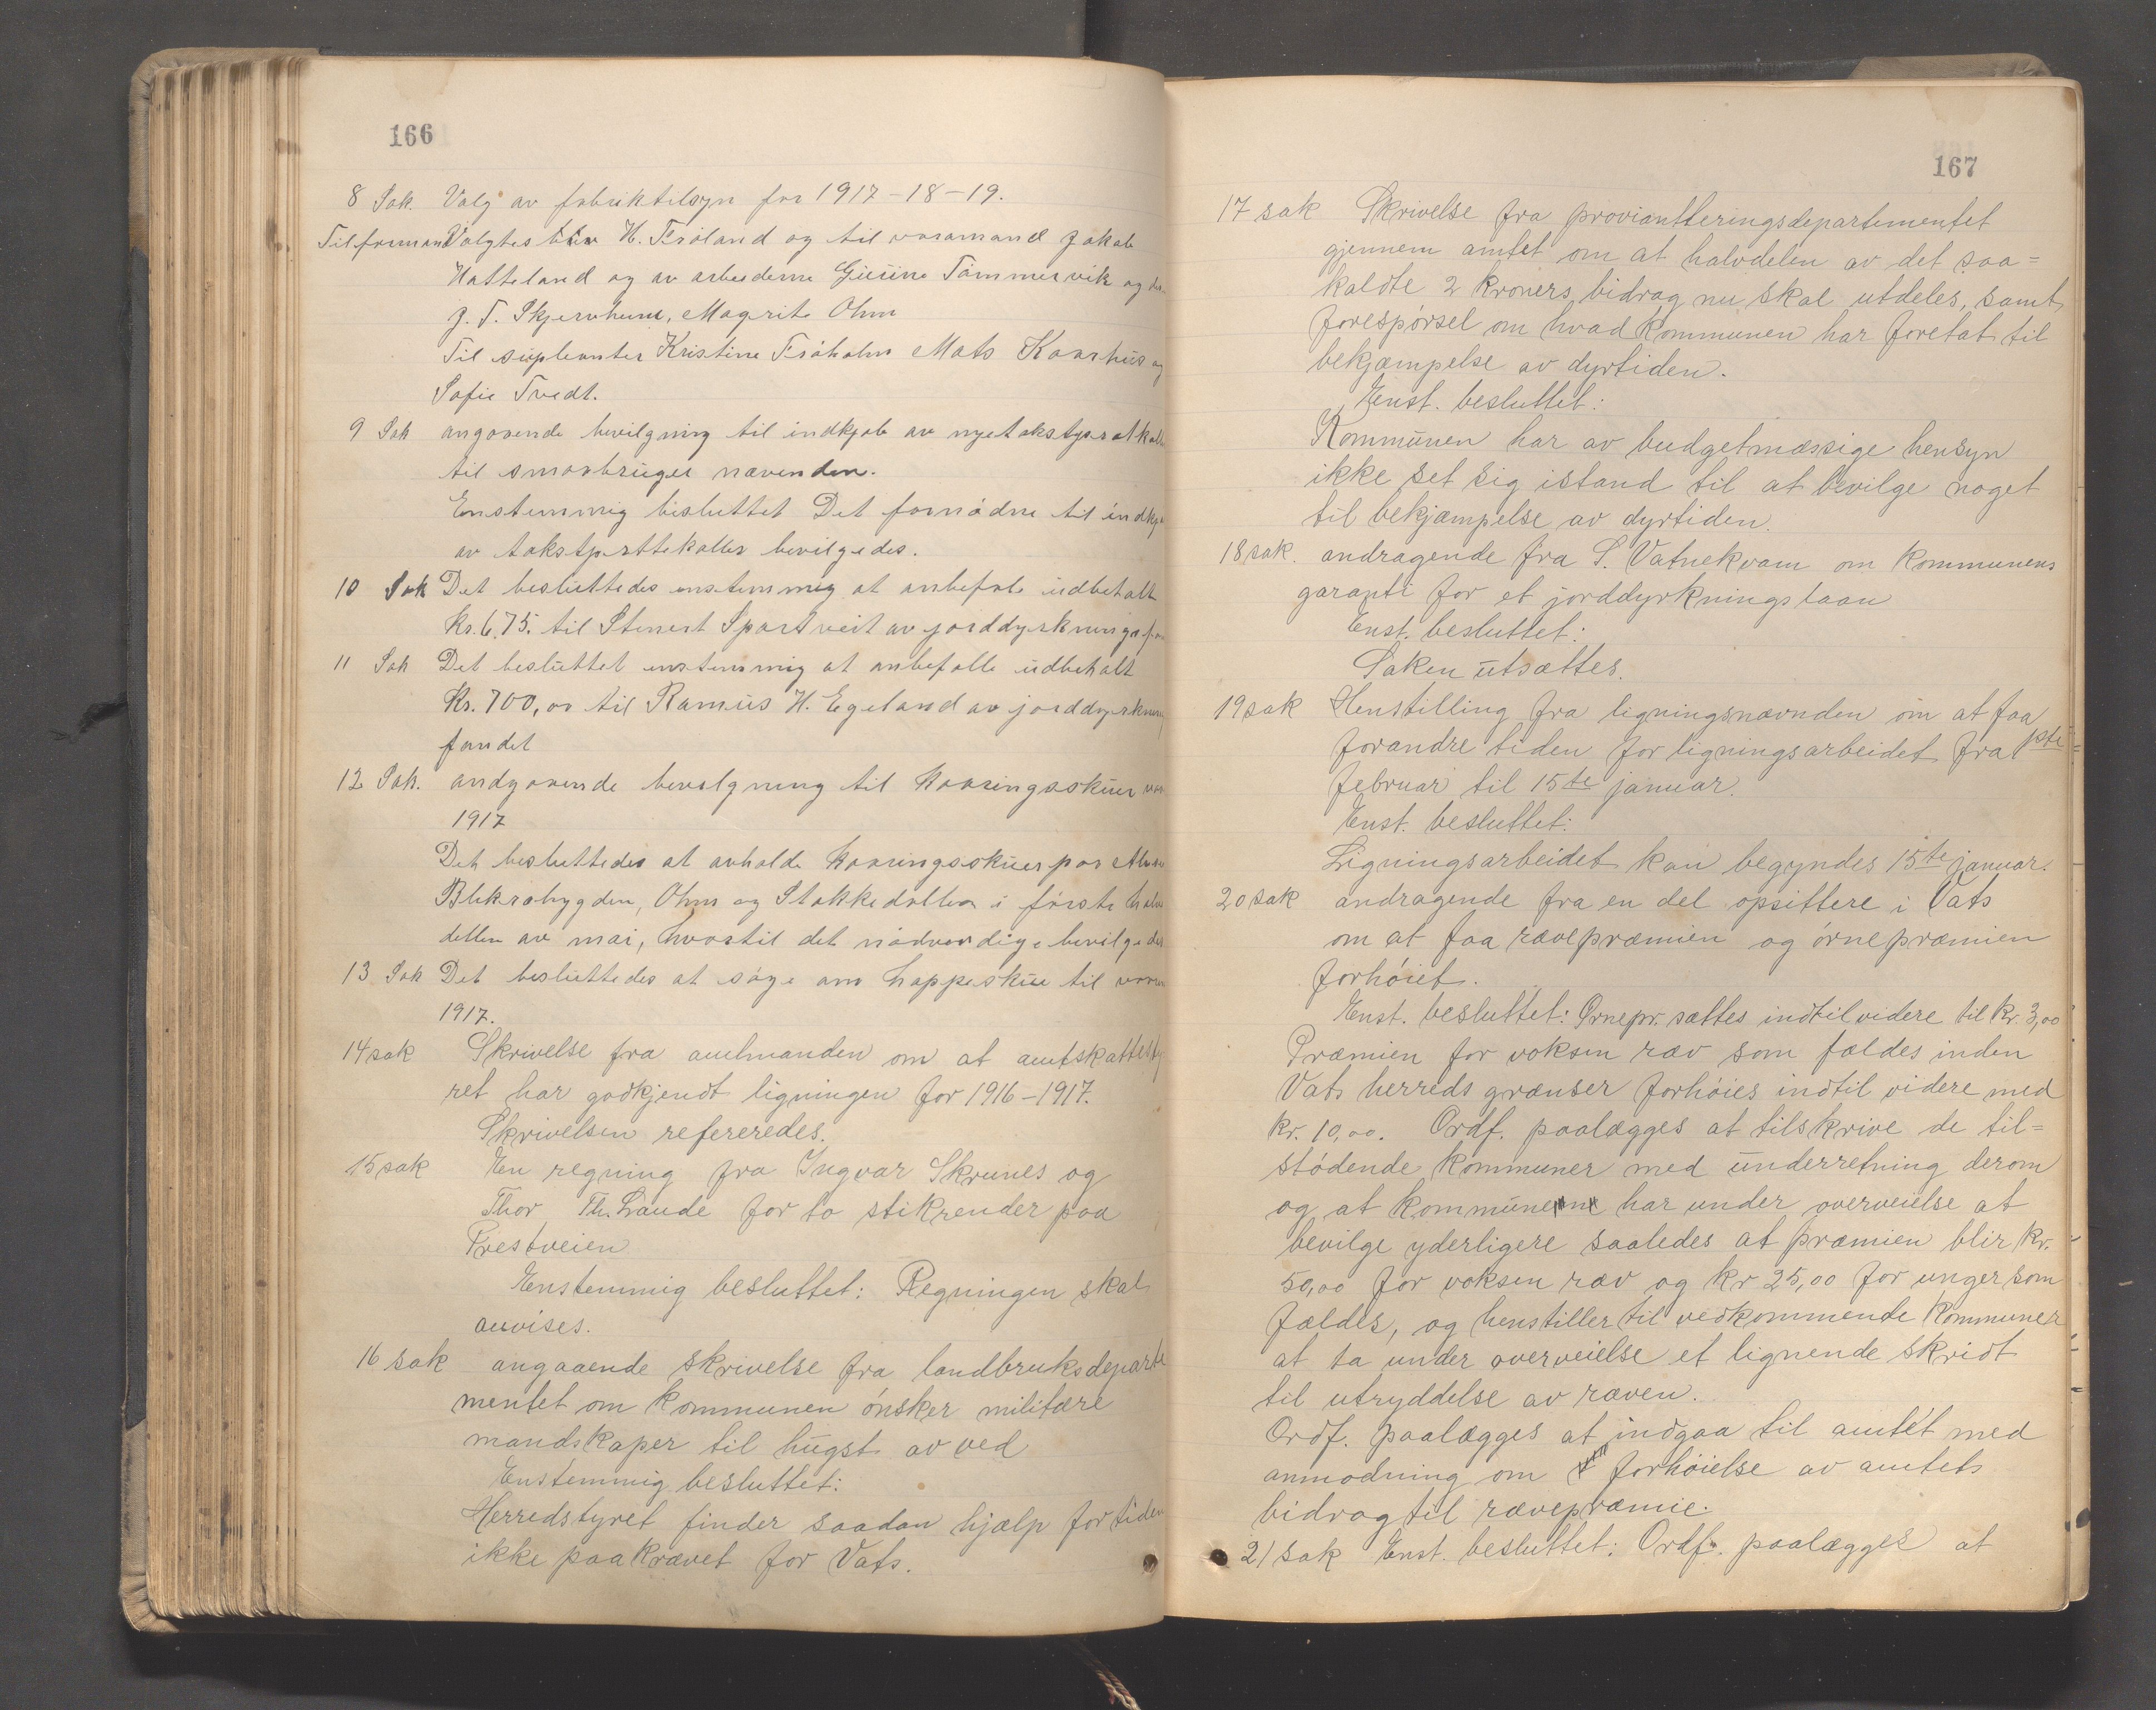 166
8 Sak. Valg av fabriktilsyn for 1917-18-19.
Til formand Valgtes H. Frøland og til varamand Jakob
Hatteland og av arbeiderne Gurine Tømmervik og
J. T. Skjervheim, Magrite Ohm
Til supleanter Kristine Frøholm Mats Kaarhus og
Sofie Tvedt.
9 Sak angaaende bevilgning til indkjøb av nye
til smaabruger nævnden.
Enstemmig besluttet Det fornødne til
av takstprottokoller bevilgedes.
10 Sak Det besluttedes enstemmig at anbefale udbetalt
Kr. 675. til Stenert av
11 Sak Det besluttet enstemmig at anbefalle udbetalt
Kr. 700,00 til Ramus H. Egeland av
fondet
12 Sak. andgaaende bevilgning til Kaaringsskuer
1917
Det besluttedes at avholde Kaaringsskuer paa
Blikrabygden, Ohm og Stokkedallen i første
dellen av mai, hvortil det nødvendige bevilgedes
13 Sak Det besluttedes at søge om hoppeskue til
1917.
14 sak Skrivelse fra amtmanden om at
ret har godkjendt ligningen for 1916-1917.
Skrivelsen refereredes.
15 sak En regning fra Ingvar Skrunes og
Thor Th. Lande for to stikrender paa
Prestveien
Enstemmig besluttet: Regningen skal
anvises.
16 sak angaaende skrivelse fra landbruksdeparte
mentet om kommunen ønsker militære
mandskaper til hugst av ved
Enstemmig besluttet:
Herredstyret finder saadan hjælp for tiden
ikke paakrævet for Vats.
167
17 sak Skrivelse fra proviantteringsdepartementet
gjennem amtet om at halvdelen av det saa=
kaldte 2 kroners bidrag nu skal utdeles, samt
forespørsel om hvad kommunen har foretat til
bekjæmpelse av dyrtiden.
Enst. besluttet:
Kommunen har av budgetmæssige hensyn
ikke set sig istand til at bevilge noget
til bekjæmpelse av dyrtiden.
18 sak. andragende fra S. Vatnekvam om kommunens
garanti for et jorddyrkningslaan
Enst. besluttet:
Saken utsættes.
19 sak Henstilling fra ligningsnævnden om at faa
forandre tiden for ligningsarbeidet fra 1ste
februar til 15te januar.
Enst. besluttet:
Ligningsarbeidet kan begyndes 15te januar.
20 sak andragende fra en del opsittere i Vats
om at faa rævepræmien og ørnepræmien
forhøiet.
Enst. besluttet: Ørnepr. sættes indtil videre til kr. 3,00
Præmien for voksen ræv som fældes inden
Vats herreds grænser forhøies indtil videre med
kr. 10,00. Ordf. paalægges at tilskrive de til=
stødende kommuner med underretning derom
og at kommunen har under overveielse at
bevilge yderligere saaledes at præmien blir kr.
50,00 for voksen ræv og kr 25,00 for unger som
fældes, og henstiller til vedkommende kommuner
at ta under overveielse et lignende skridt
til utryddelse av ræven.
Ordf. paalægges at indgaa til amtet med
anmodning om forhøielse av amtets
bidrag til rævepræmie.
21 sak Enst. besluttet: Ordf. paalægges at